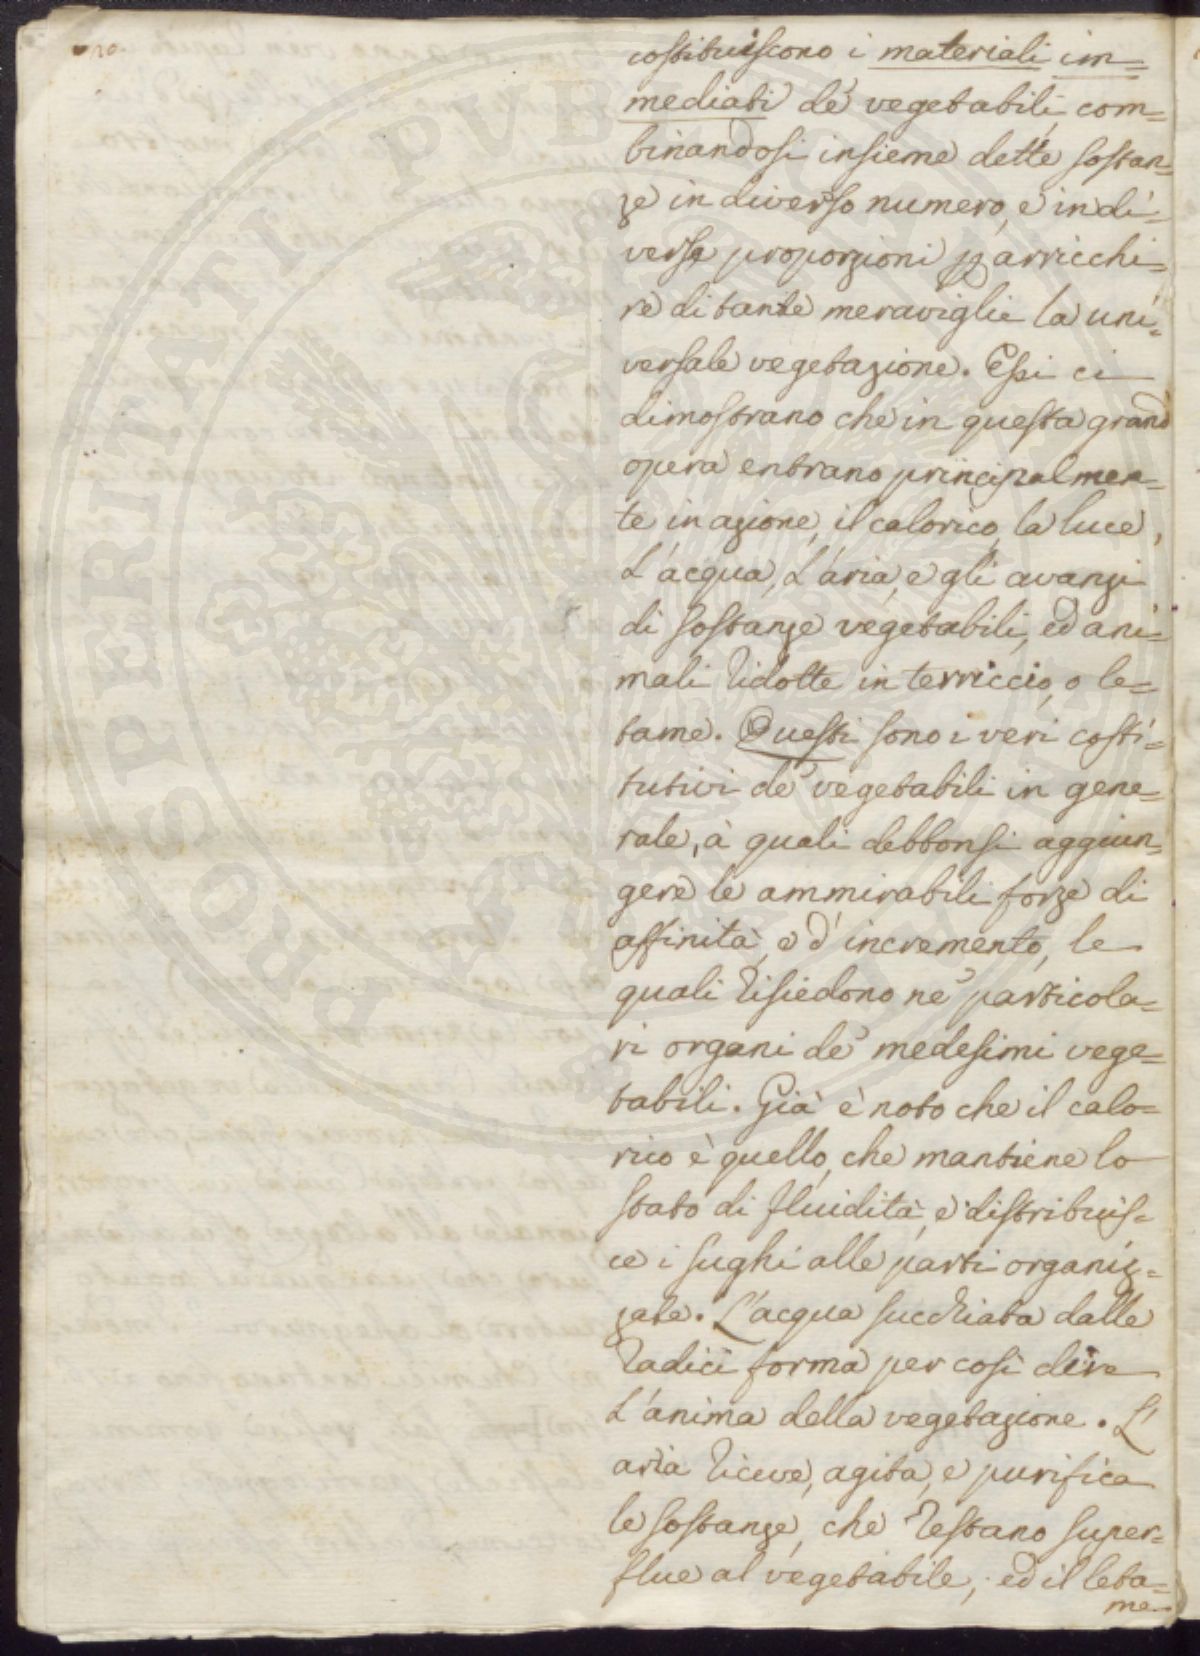 10.
costituiscono i materiali im=
mediati de' vegetabili, com=
binandosi insieme dette sostan=
ze in diverso numero, e in di=
verse proporzioni p arricchi=
re di tante meraviglie la uni=
versale vegetazione. Essi ci
dimostrano che in questa grand
opera entrano principalmen=
te in azione, il calorico, la luce,
L'acqua, L'aria, e gli avanzi
di sostanze vegetabili, ed ani=
mali ridotte in terriccio, o le=
tame. Questi sono i veri costi=
tutivi de' vegetabili in gene=
rale, à quali debbonsi aggiun=
gere le ammirabili forze di
affinità, e d'incremento, le
quali risiedono ne' particola=
ri organi de' medesimi vege=
tabili. Già è noto che il calo=
rico è quello, che mantiene lo
stato di fluidità, e distribuis=
ce i sughi alle parti organiz=
zate. L'acqua succhiata dalle
radici forma per così dire
L'anima della vegetazione. L'
aria riceve, agita, e purifica
le sostanze, che restano super=
flue al vegetabile, ed il leta=
me
PROSPERITATI PUBLICAE